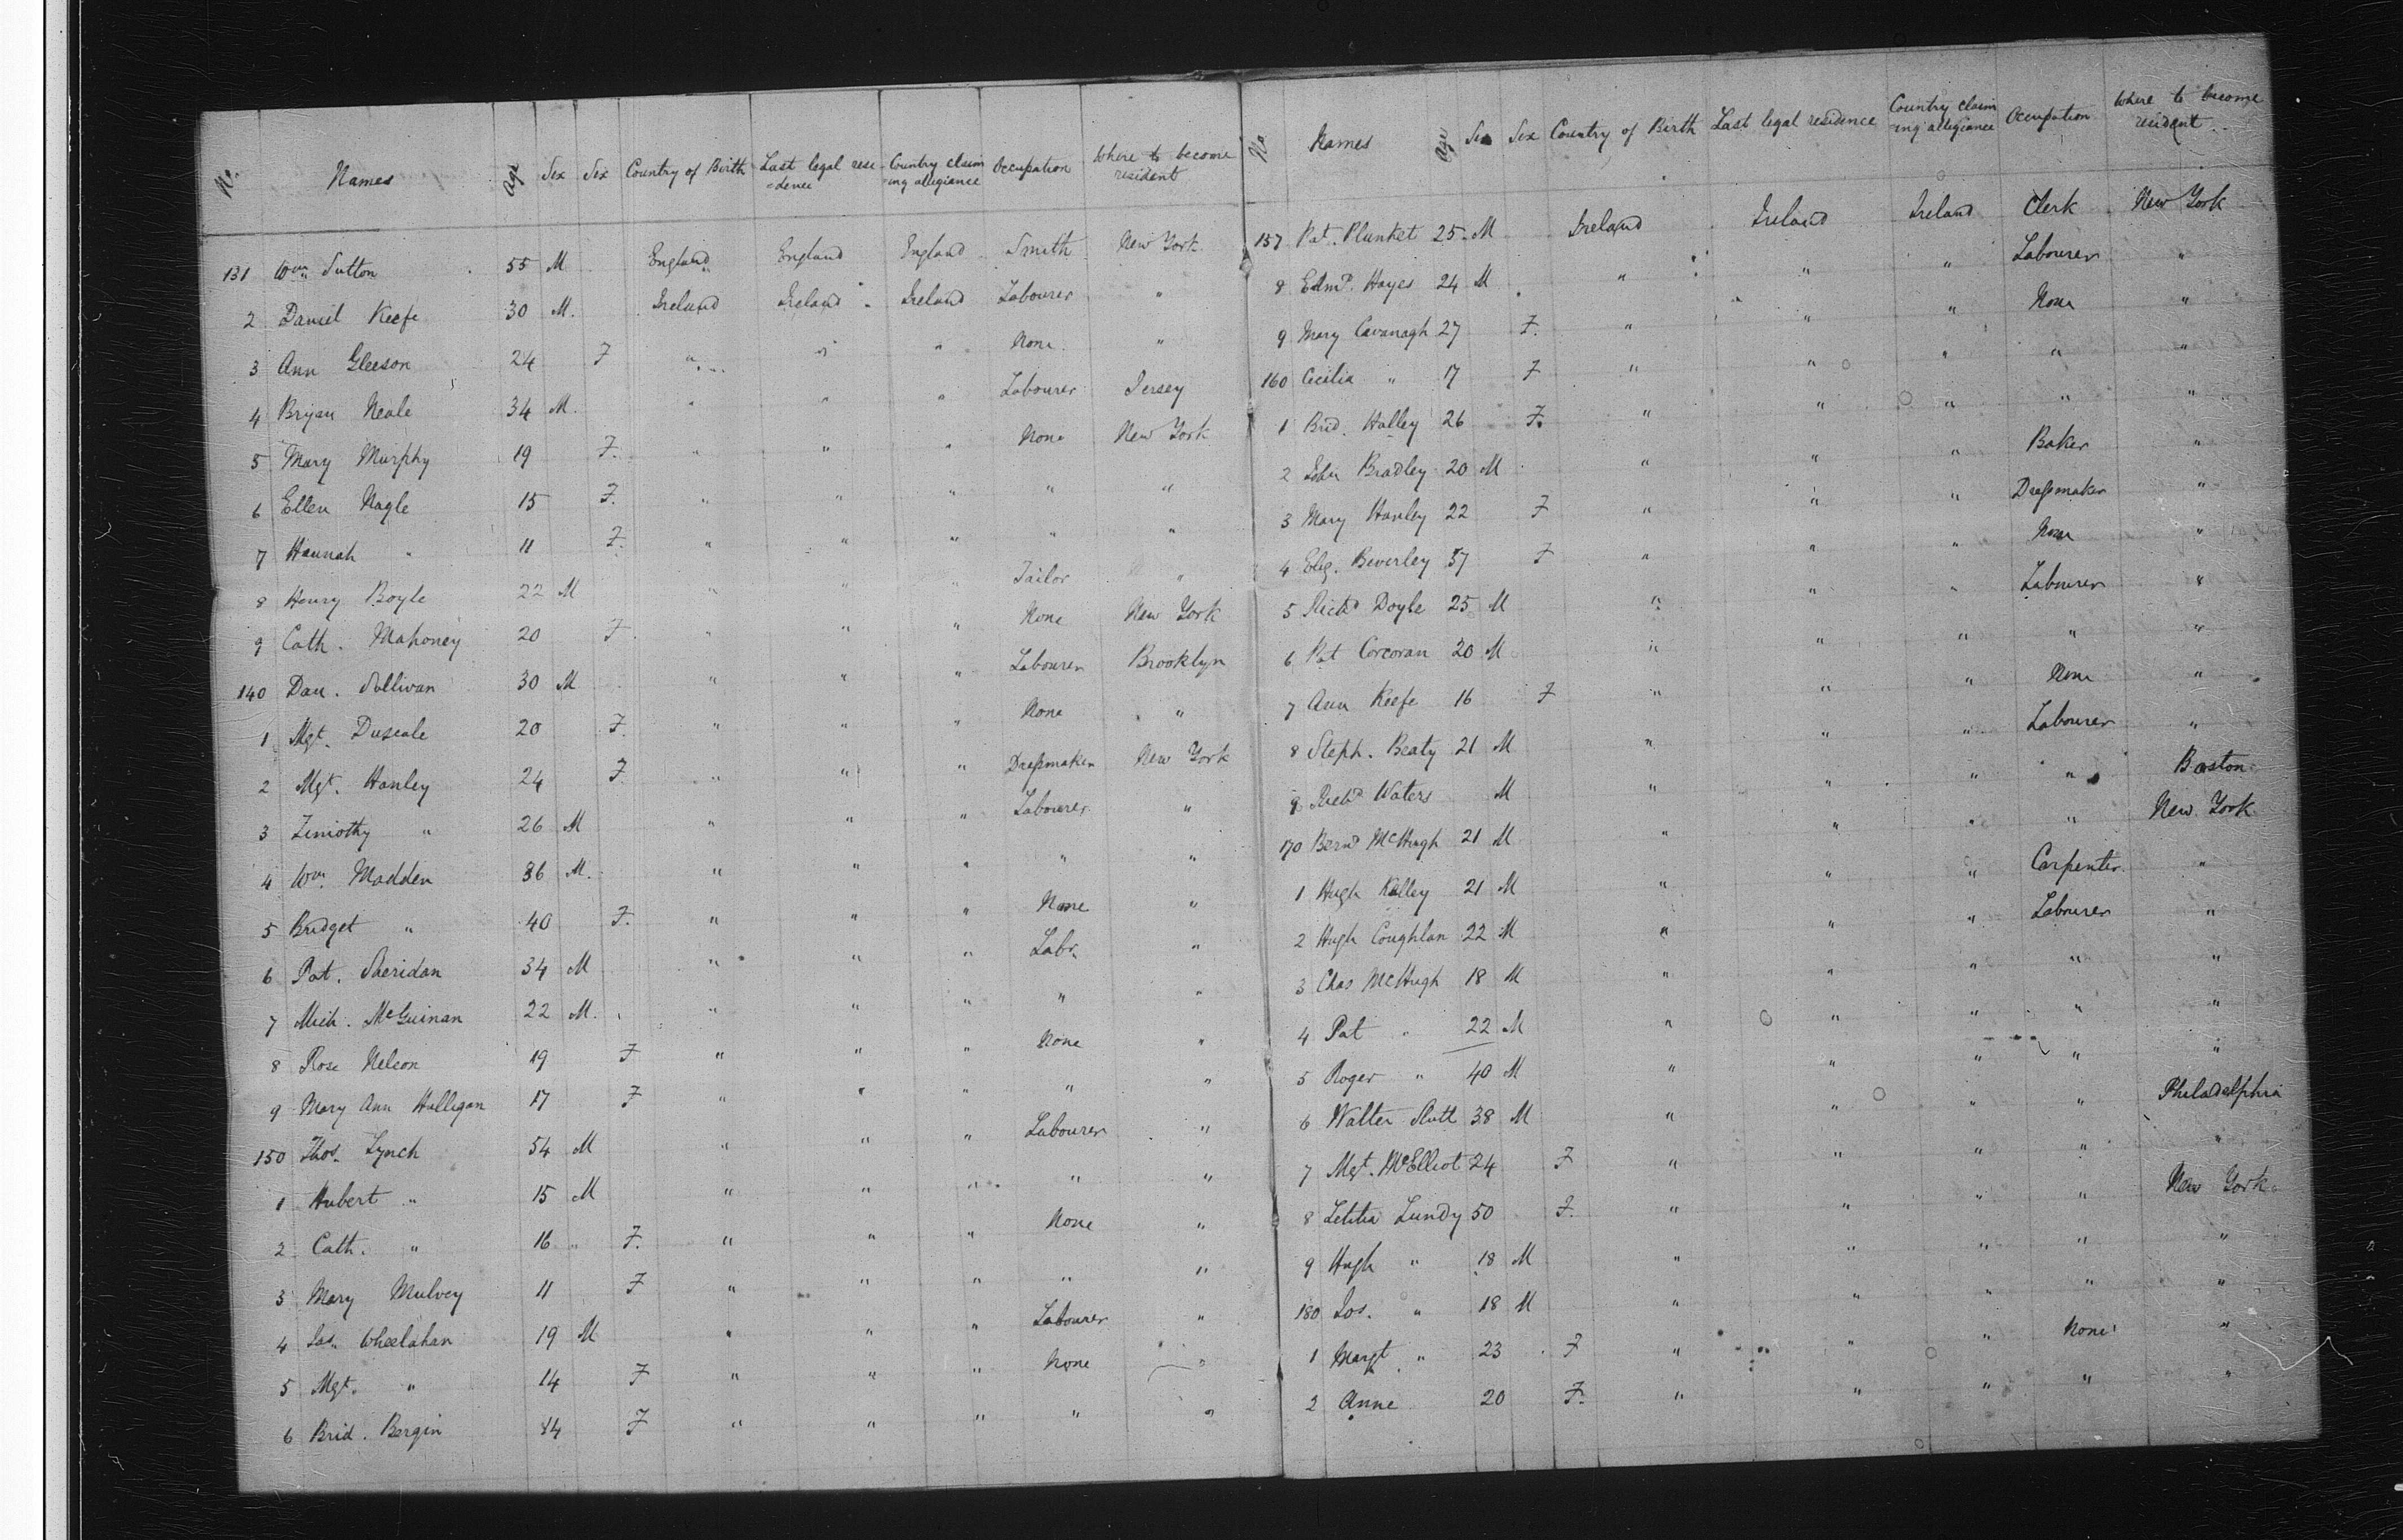 No. Names Age Sex Sex Country of Birth Last legal resi=dence Country claim=ing allegiance Occupation Where to become resident
131 Wm. Sutton 55 M England England England Smith New York
2 Daniel Keefe 30 M. Ireland Ireland Ireland Labourer "
3 Ann Gleeson 24 F " " " None "
4 Bryan Neale 34 M. " " " Labourer Jersey
5 Mary Murphy 19 F. " " " None New York
6 Ellen Nagle 15 F. " " " " "
7 Hannah " 11 F. " " " " "
8 Henry Boyle 22 M " " " Tailor "
9 Cath. Mahoney 20 F. " " " None New York
140 Dan. Sullivan 30 M " " " Labourer Brooklyn
1 Mgt. 20 F. " " " None "
2 Mgt. Hanley 24 F. " " " Dressmaker New York
3 Timothy " 26 M " " " Labourer "
4 Wm. Madden 36 M. " " " " "
5 Bridget " 40 F. " " " None "
6 Pat. Sheridan 34 M " " " Labr. "
7 Mich. McGuinan 22 M. " " " " "
8 Rose Nelson 19 F " " " None "
9 Mary Ann Halligan 17 F " " " " "
150 Thos. Lynch 54 M " " " Labourer "
1 Hubert " 15 M " " " " "
2 Cath. " 16 F. " " " None "
3 Mary Mulvey 11 F " " " " "
4 Jas. Wheelahan 19 M " " " Labourer "
5 Mgt. " 14 F " " " None "
6 Brid. Bergin 14 F " " " " "
No. Names Age Sex Sex Country of Birth Last legal residence Country claim=ing allegiance Occupation Where to become resident
157 Pat. Plunket 25 M Ireland Ireland Ireland Clerk New York
8 Edmd. Hayes 24 M " " " Labourer "
9 Mary Cavanagh 27 F. " " " None "
160 Cecilia " 17 F " " " " "
1 Brid. Halley 26 F. " " " " "
2 John Bradley 20 M " " " Baker "
3 Mary Hanley 22 F " " " Dressmaker "
4 Eliz. Beverley 37 F " " " None "
5 Richd Doyle 25 M " " " Labourer "
6 Pat Corcoran 20 M " " " " "
7 Ann Keefe 16 F " " " None "
8 Steph. Beaty 21 M " " " Labourer "
9 Richd Waters M " " " " Boston
170 Bernd McHugh 21 M " " " " New York
1 Hugh Kelley 21 M " " " Carpenter "
2 Hugh Coughlan 22 M " " " Labourer "
3 Chas McHugh 18 M " " " " "
4 Pat " 22 M " " " " "
5 Roger " 40 M " " " " "
6 Walter 38 M " " " " Philadelphia
7 Mgt. McElliot 24 F " " " " "
8 Letitia Lundy 50 F. " " " " New York
9 Hugh " 18 M " " " " "
180 Jos. " 18 M " " " " "
1 Margt " 23 F " " " None "
2 Anne 20 F. " " " " "